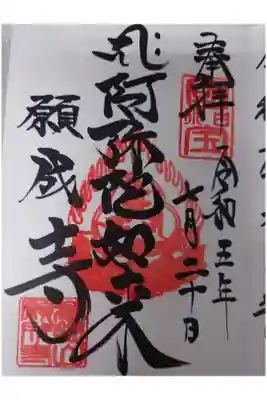 奉拝
令和三年
七月二十日
阿弥陀如来
願成寺